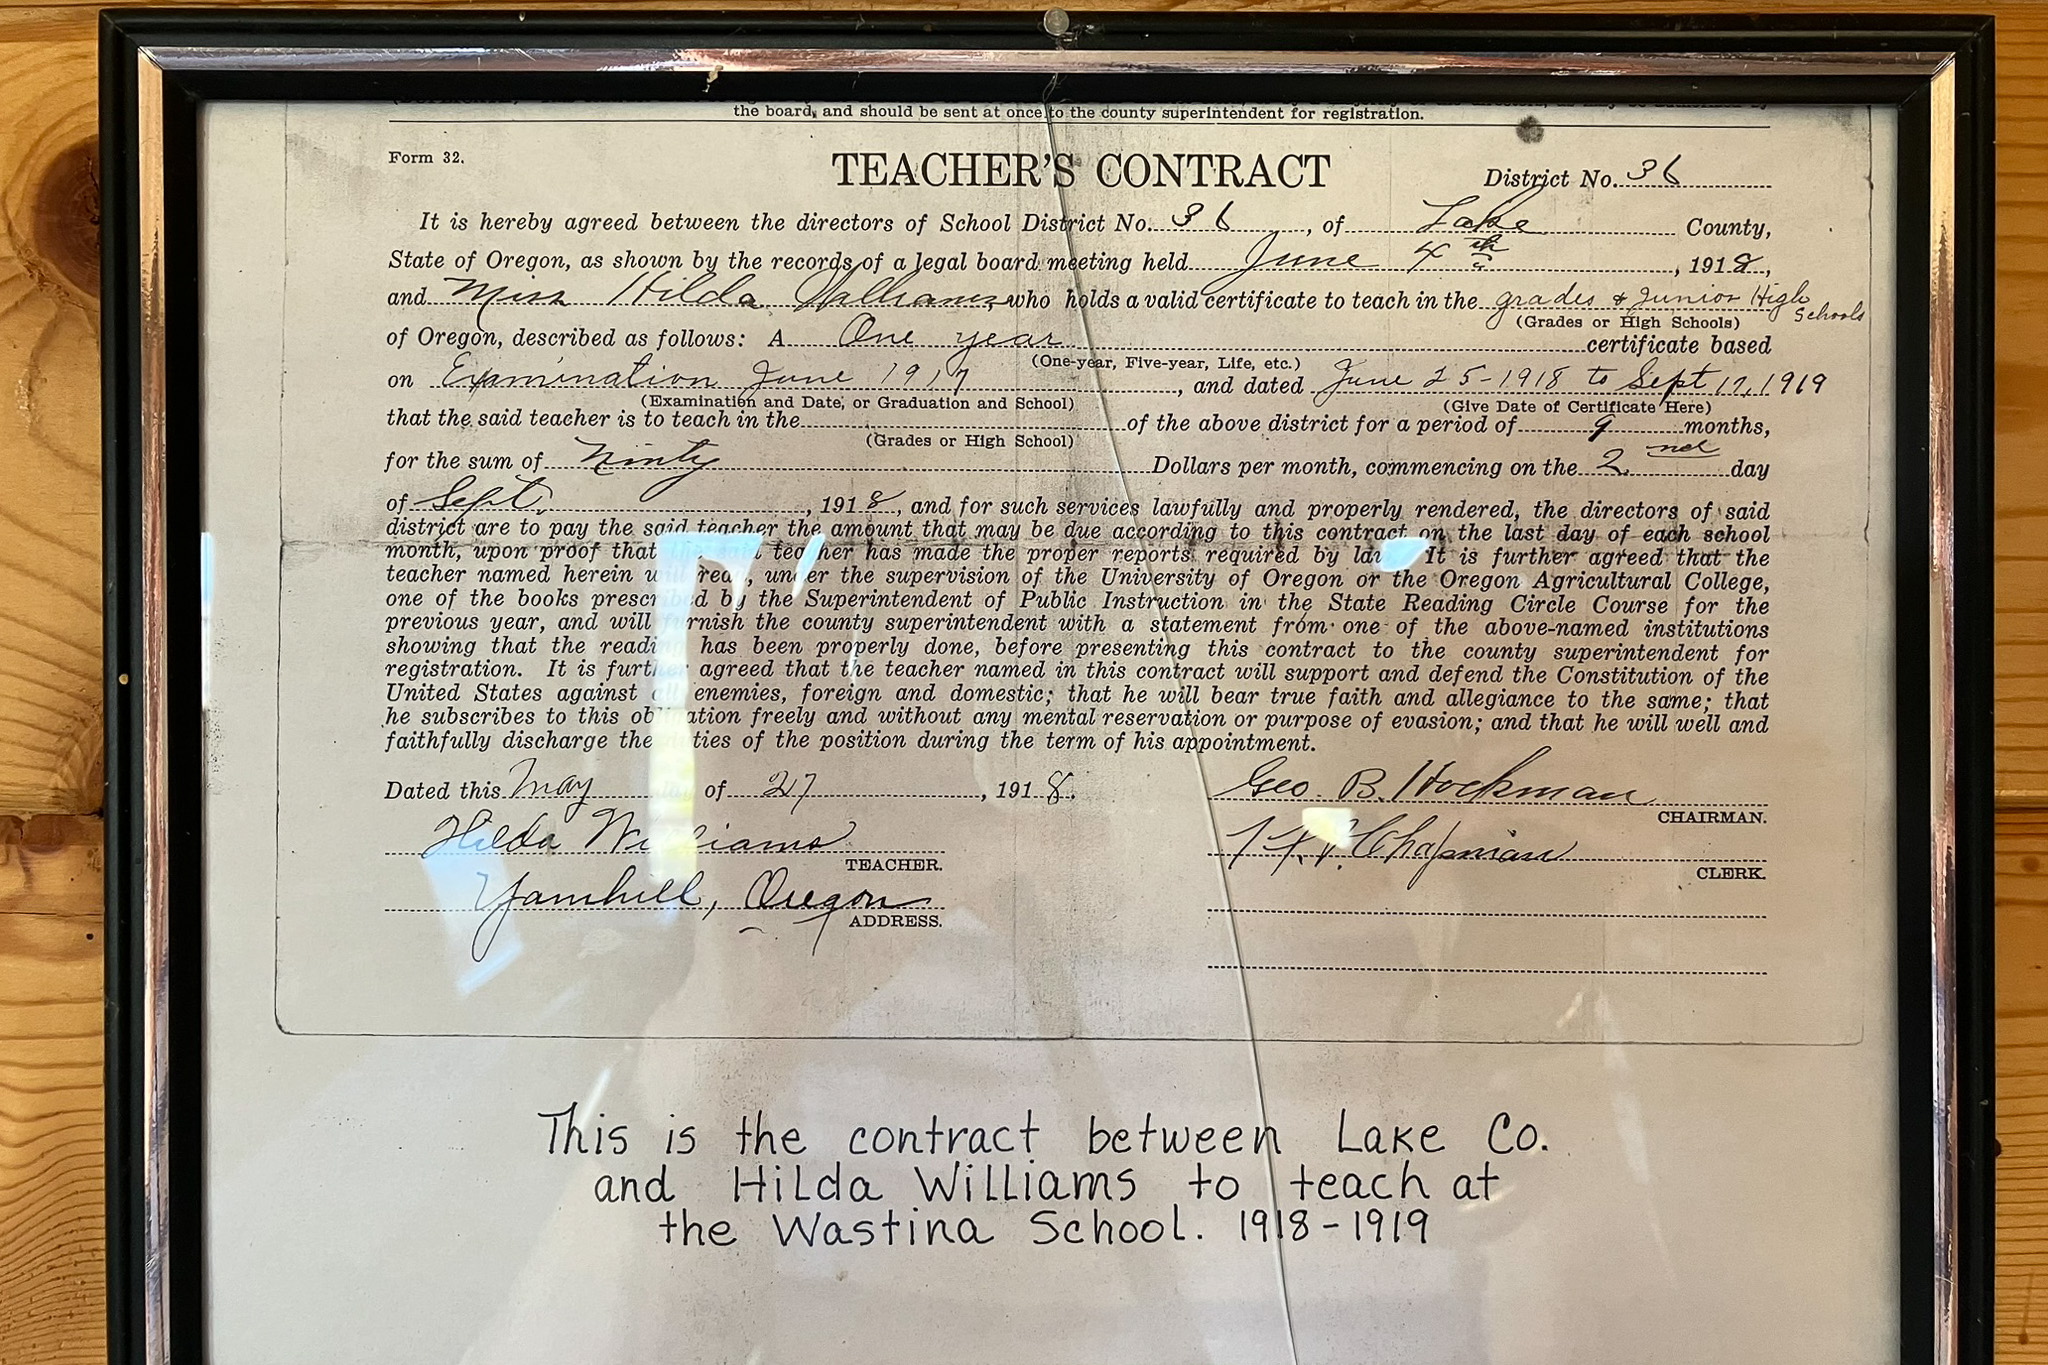 the board, and should be sent at once to the county superintendent for registration.
Form 32.
TEACHER'S CONTRACT
District No. 36
It is hereby agreed between the directors of School District No. 36, of Lake County,
State of Oregon, as shown by the records of a legal board meeting held June 4th, 1918,
and Miss Hilda Williams, who holds a valid certificate to teach in the grades & Junior High Schools
(Grades or High Schools)
of Oregon, described as follows: A One year certificate based
(One-year, Five-year, Life, etc.)
on Examination June 1917, and dated June 25-1918 to Sept 17, 1919
(Examination and Date, or Graduation and School)
(Give Date of Certificate Here)
that the said teacher is to teach in the of the above district for a period of 9 months,
(Grades or High School)
for the sum of Ninty Dollars per month, commencing on the 2nd day
of Sept., 1918, and for such services lawfully and properly rendered, the directors of said
district are to pay the said teacher the amount that may be due according to this contract on the last day of each school
month, upon proof that the said teacher has made the proper reports required by law. It is further agreed that the
teacher named herein will read, under the supervision of the University of Oregon or the Oregon Agricultural College,
one of the books prescribed by the Superintendent of Public Instruction in the State Reading Circle Course for the
previous year, and will furnish the county superintendent with a statement from one of the above-named institutions
showing that the reading has been properly done, before presenting this contract to the county superintendent for
registration. It is further agreed that the teacher named in this contract will support and defend the Constitution of the
United States against all enemies, foreign and domestic; that he will bear true faith and allegiance to the same; that
he subscribes to this obligation freely and without any mental reservation or purpose of evasion; and that he will well and
faithfully discharge the duties of the position during the term of his appointment.
Dated this May day of 27, 1918.
Geo B. Hockman
CHAIRMAN.
Hilda Williams
TEACHER.
Chapman
CLERK.
Yamhill, Oregon
ADDRESS.
This is the contract between Lake Co.
and Hilda Williams to teach at
the Wastina School. 1918-1919